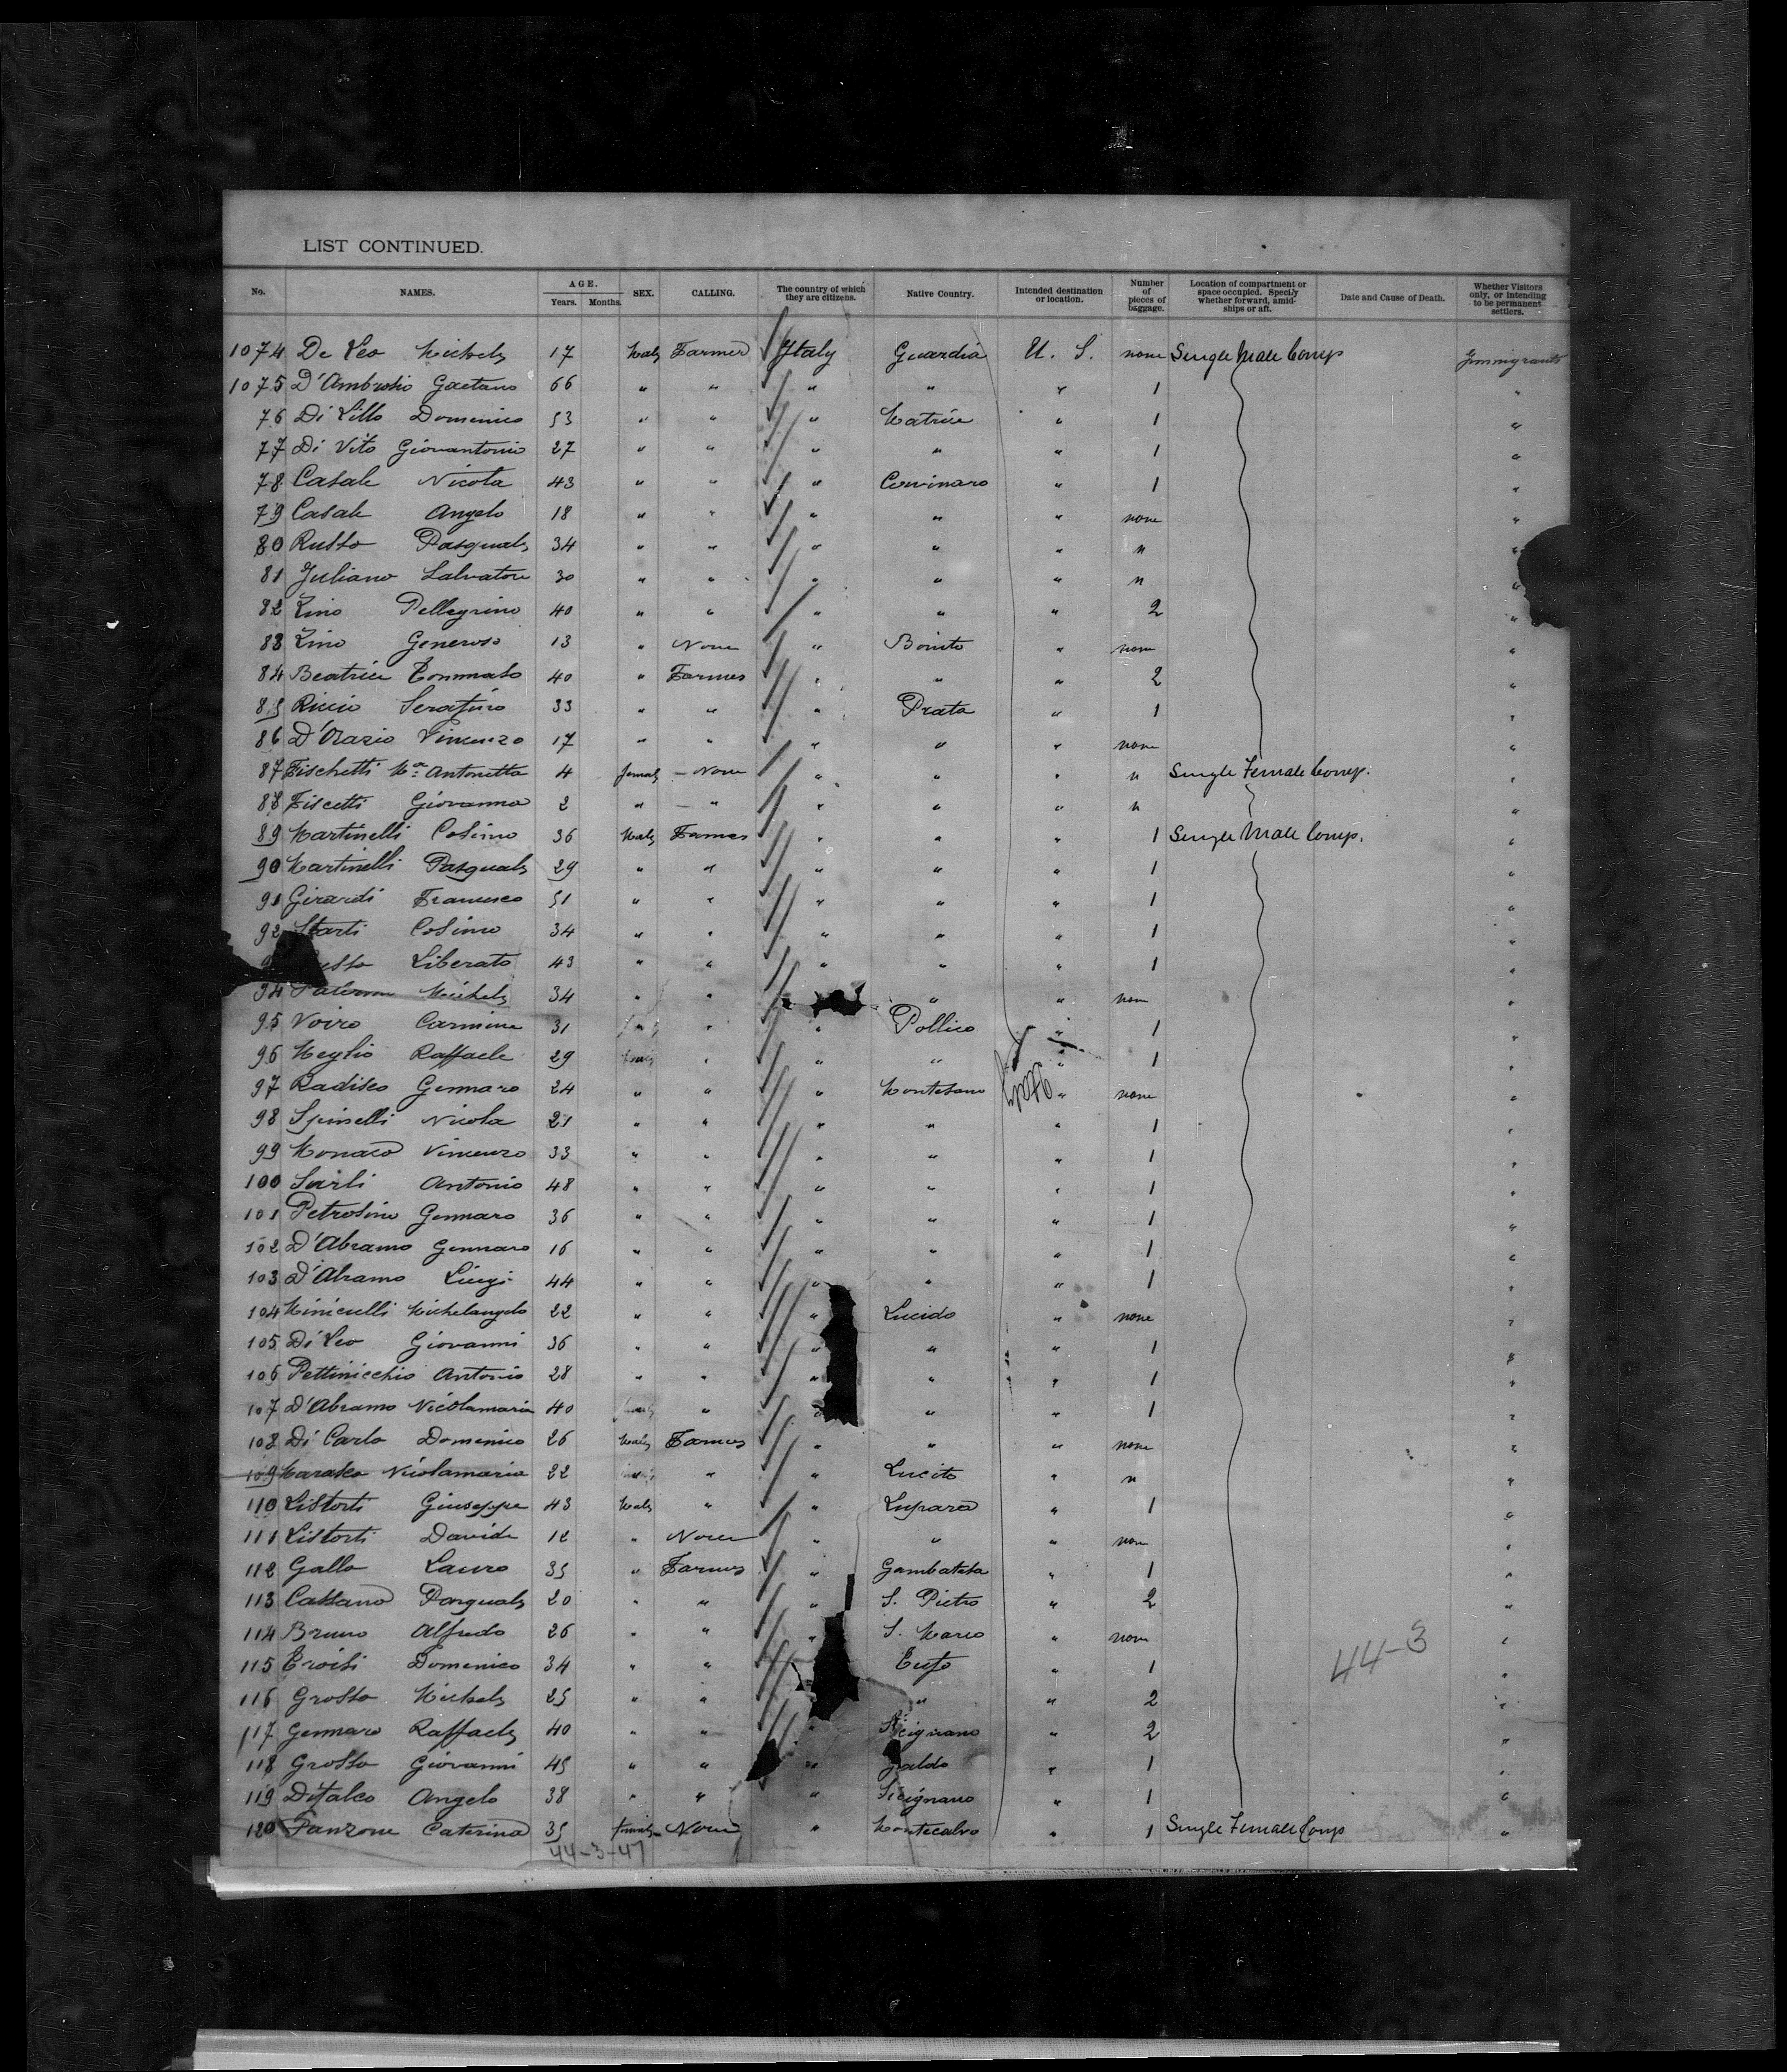 LIST CONTINUED.
No. NAMES. AGE. Years. Months. SEX. CALLING. The country of which they are citizens. Native Country. Intended destination or location. Number of pieces of baggage. Location of compartment or space occupied. Specify whether forward, amidships or aft. Date and Cause of Death. Whether Visitors only, or intending to be permanent settlers.
1074 De Leo Michele 17 Male Farmer Italy Guardia U. S. none Single Male Comp Immigrants
1075 D'Ambrosio Gaetano 66 " " " " " 1 "
76 Di Lillo Domenico 53 " " " Matrice " 1 "
77 Di Vito Giovantonio 27 " " " " " 1 "
78 Casale Nicola 43 " " " " 1 "
79 Casale Angelo 18 " " " " " none "
80 Russo Pasquale 34 " " " " " " "
81 Juliano Salvatore 30 " " " " " " "
82 Zino Pellegrino 40 " " " " " 2 "
83 Zino Generoso 13 " None " Bonito " none "
84 Beatrice Tommaso 40 " Farmer " " " 2 "
85 Riccio Serafino 33 " " " Prata " 1 "
86 D'Orazio Vincenzo 17 " " " " " none "
87 Fischetti Ma. Antonetta 4 female - None " " " " Single Female Comp. "
88 Fiscetti Giovanna 2 " - " " " " " "
89 Martinelli Cosimo 36 Male Farmer " " " 1 Single Male Comp. "
90 Martinelli Pasquale 29 " " " " " 1 "
91 Girardi Francesco 51 " " " " " 1 "
92 Cosimo 34 " " " " " 1 "
Liberato 43 " " " " " 1 "
94 Michele 34 " " " " none "
95 Voiro Carmine 31 " " Pollico " 1 "
96 Meglio Raffaele 29 " " " " 1 "
97 Radisco Gennaro 24 " " " Montesano " none "
98 Spinelli Nicola 21 " " " " " 1 "
99 Monaco Vincenzo 33 " " " " " 1 "
100 Antonio 48 " " " " " 1 "
101 Petrosino Gennaro 36 " " " " " 1 "
102 D'Abramo Gennaro 16 " " " " " 1 "
103 D'Abramo Luigi 44 " " " " " 1 "
104 Minicelli Michelangelo 22 " " " Lucido " none "
105 Di Leo Giovanni 36 " " " " " 1 "
106 Pettinicchio Antonio 28 " " " " " 1 "
107 D'Abramo Nicolamaria 40 " " " " 1 "
108 Di Carlo Domenico 26 Male Farmer " " " none "
109 Marasco Nicolamaria 22 " " Lucito " " "
110 Listorti Giuseppe 43 Male " " Lupara " 1 "
111 Listorti Davide 12 " None " " " none "
112 Gallo Lauro 35 " Farmer " Gambatesa " 1 "
113 Cassano Pasquale 20 " " " S. Pietro " 2 "
114 Bruno Alfredo 26 " " " S. Marco " none "
115 Troisi Domenico 34 " " Tufo " 1 "
44-3
116 Grosso Michele 25 " " " " 2 "
117 Gennaro Raffaele 40 " " " Sicignano " 2 "
118 Grosso Giovanni 45 " " " Galdo " 1 "
119 Angelo 38 " " " Sicignano " 1 "
120 Panzone Caterina 35 female None " Montecalvo " 1 Single Female Comp "
44-3-47